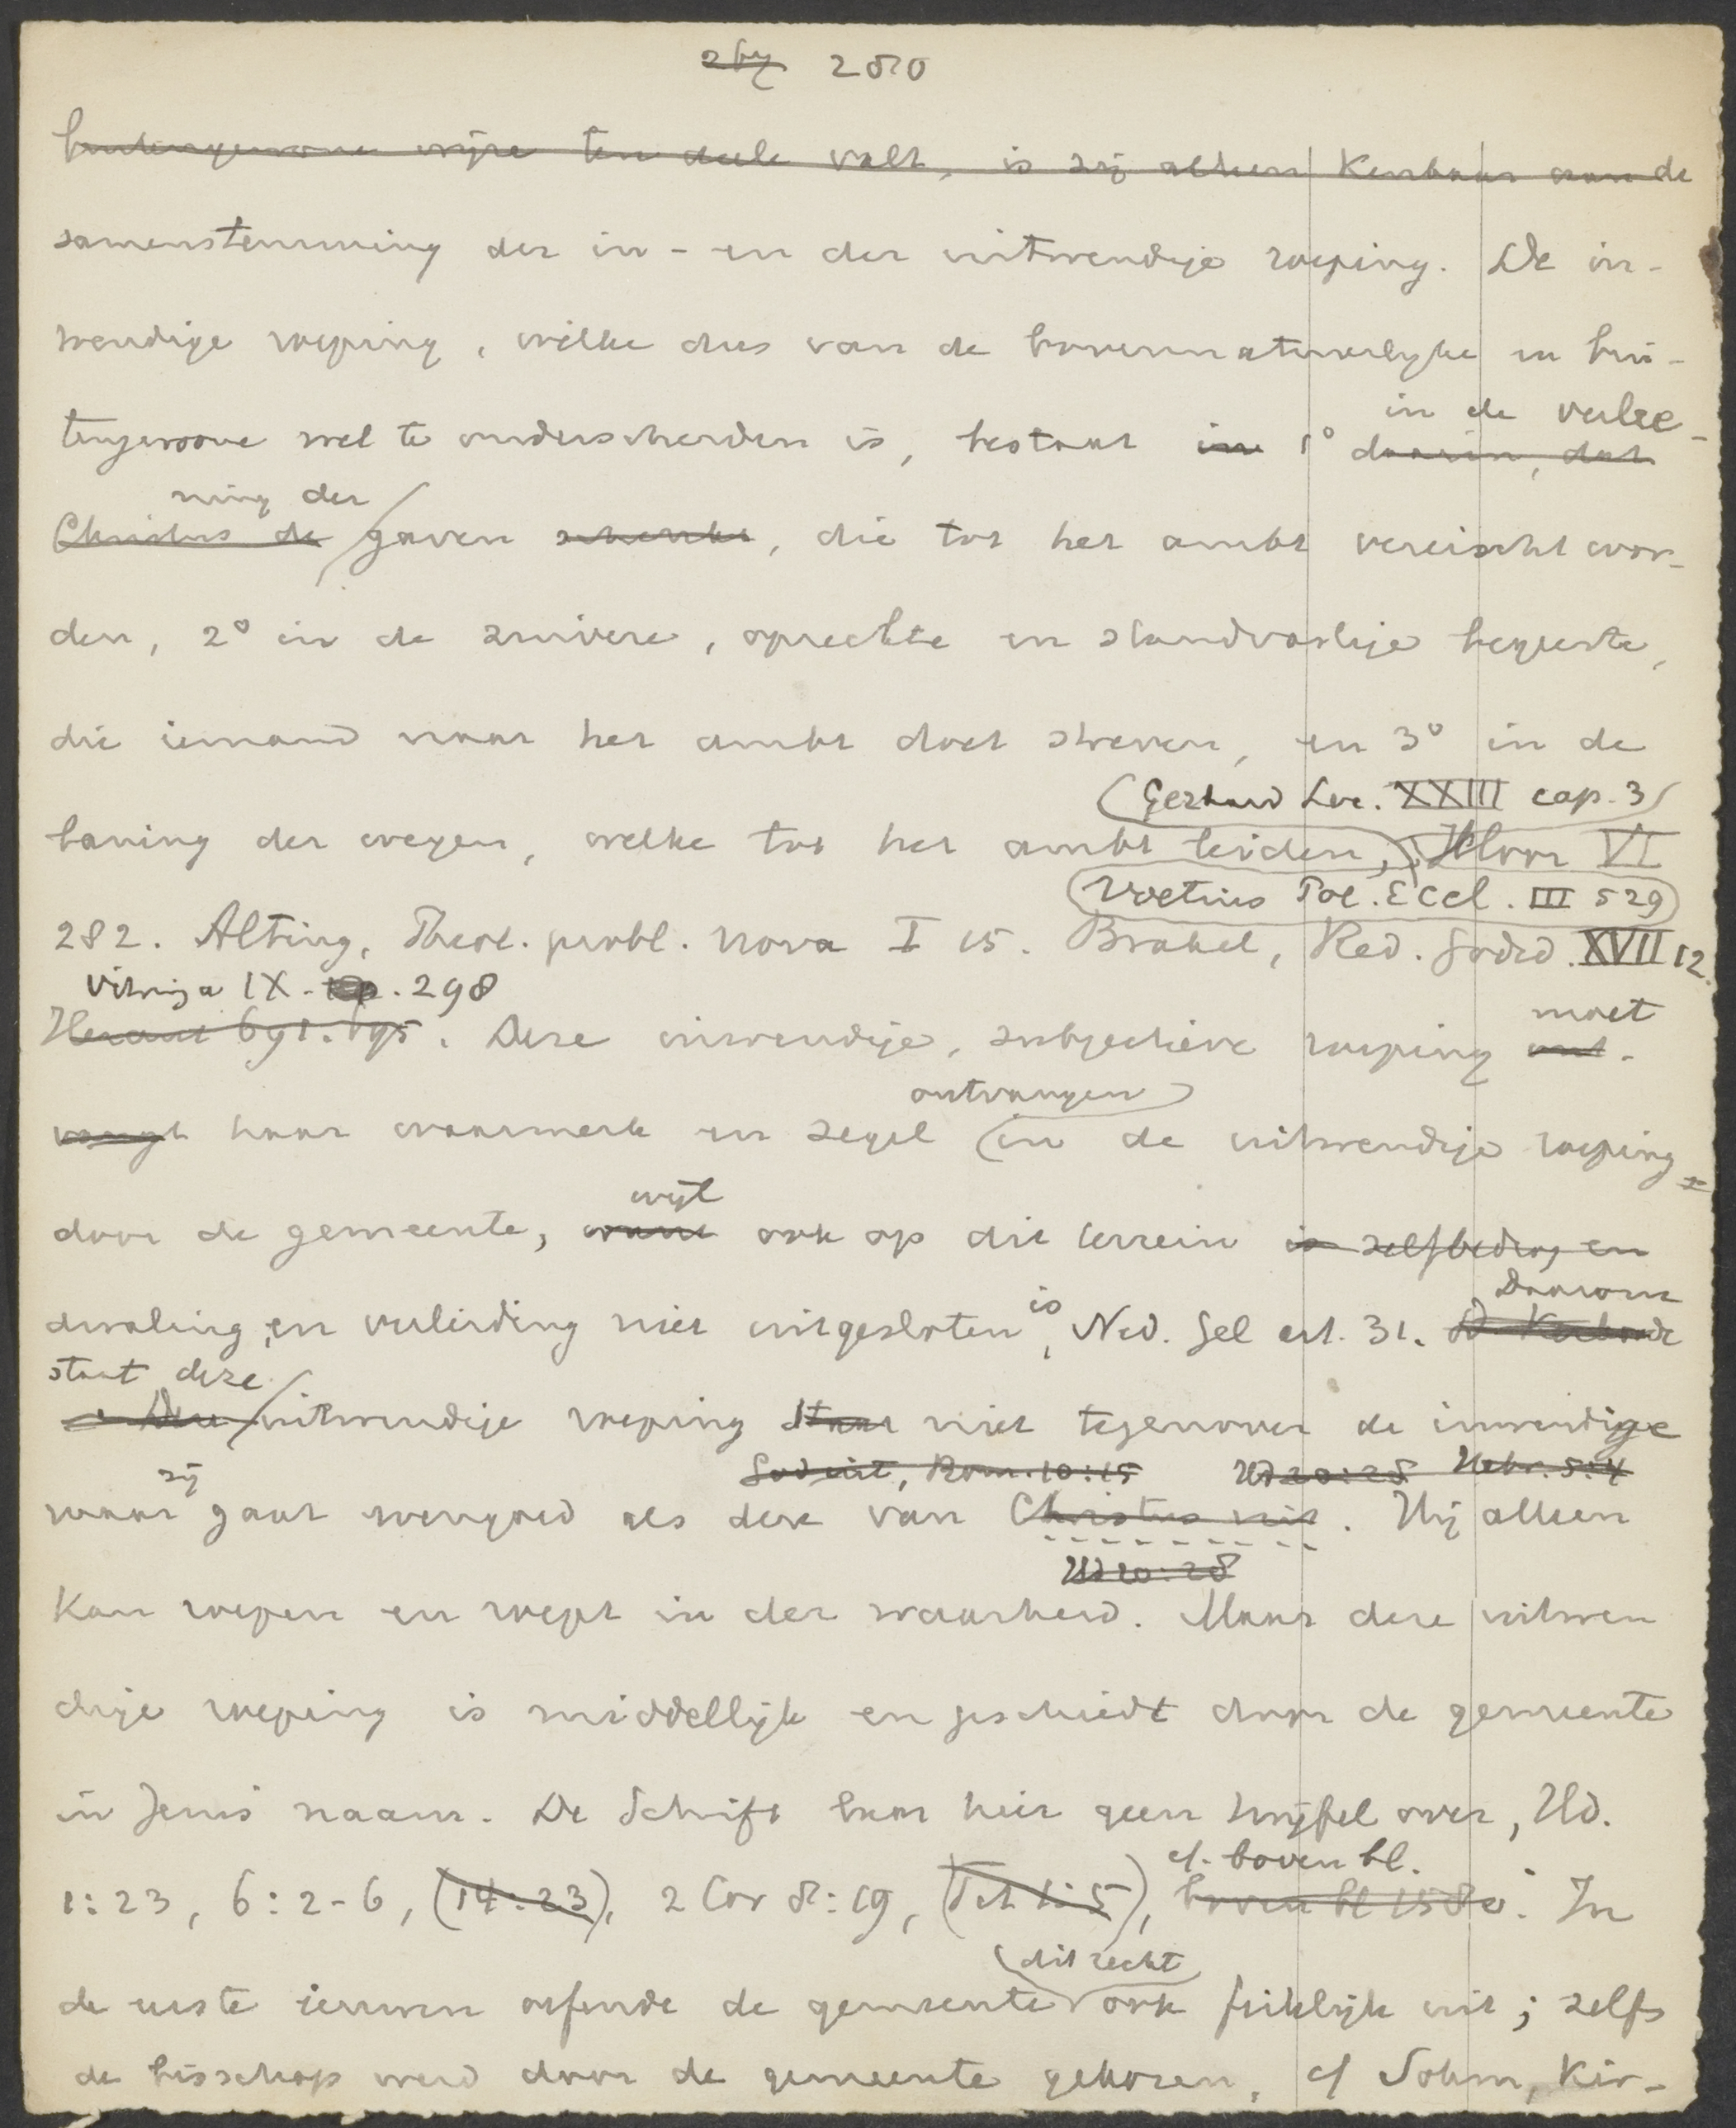 280
buitengewone wijze ten deele valt, is zij alleen kenbaar aan de
samenstemming der in- en der uitwendige roeping. De in-
wendige roeping, welke dus van de bovennatuurlijke en bui-
in de verlee-
tengewone wel te onderscheiden is, bestaat in 1° daarin, dat
ning der
Christus de gaven schenkt, die tot het ambt vereischt wor-
den, 2° in de zuivere, oprechte en standvastige begeerte,
die iemand naar het ambt doet streven, en 3° in de
(Gerhard Loc. XXIII cap. 3)
baning der wegen, welke tot het ambt leiden, Moor VI
(Voetius Pol. Eccl. III 529)
282. Alting, Theol. probl. nova I 15. Brakel, Red. Godsd. XVII 12.
Vitringa IX. 298
Heraut 691. 695. Deze inwendige, subjectieve roeping ont-
moet
vangt haar waarmerk en zegel in de uitwendige roeping
ontvangen
wijl
door de gemeente, want ook op dit terrein is zelfbedrog en
Daarom
dwaling en verleiding niet uitgesloten is, Ned. Gel art. 31.
staat deze
Deze uitwendige roeping staat niet tegenover de inwendige
God uit, Rom. 10:15 Hd 20:28 Hebr. 5:4
zij
maar gaat evengoed als deze van Christus uit. Hij alleen
Hd 20:28
kan roepen en roept in der waarheid. Maar deze uitwen
dige roeping is middellijk en geschiedt door de gemeente
in Jezus' naam. De Schrift laat hier geen twijfel over, Hd.
cf. boven bl.
1:23, 6:2-6, (14:23), 2 Cor 8:19, (Tit 1:5), boven bl 158. In
(dit recht
de eerste eeuwen oefende de gemeente ook feitelijk uit; zelfs
de bisschop werd door de gemeente gekozen, cf Sohm, Kir-